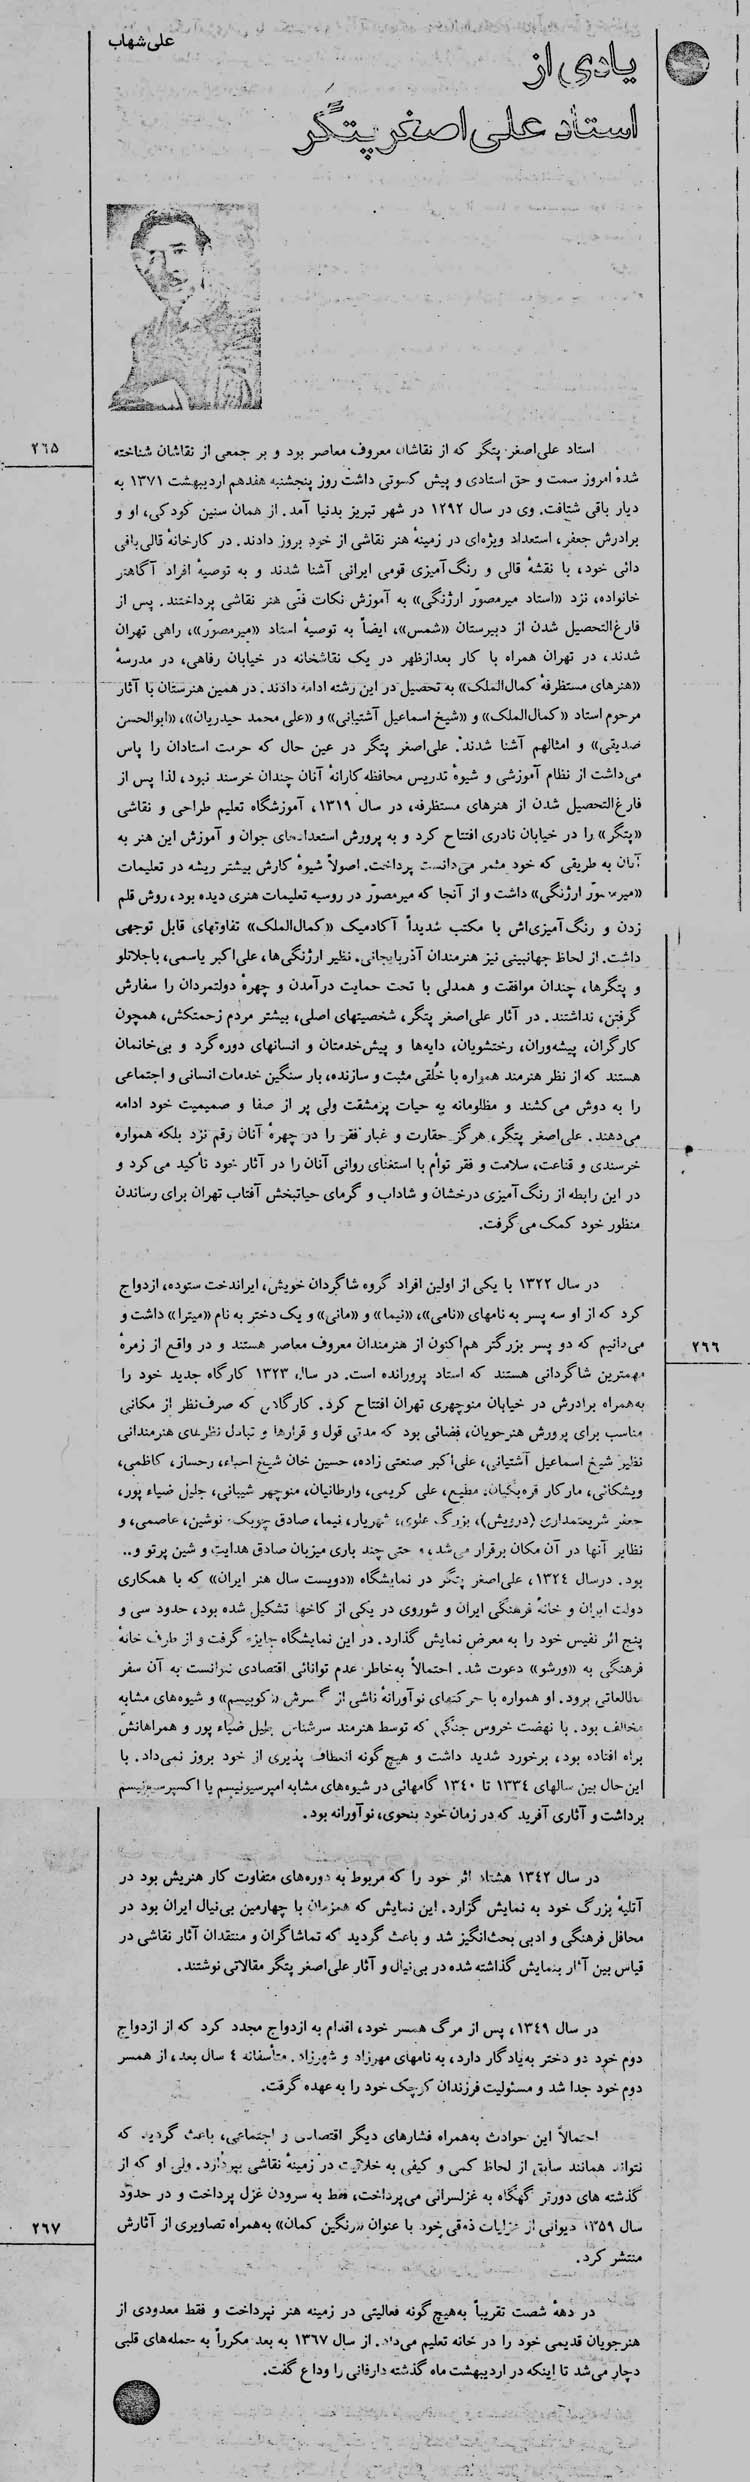 علی شهاب
یادی از
استاد علی اصغر پتگر
۲۶۵
استاد علی‌اصغر پتگر که از نقاشان معروف معاصر بود و بر جمعی از نقاشان شناخته
شدهٔ امروز سمت و حق استادی و پیش کسوتی داشت روز پنجشنبه هفدهم اردیبهشت ۱۳۷۱ به
دیار باقی شتافت. وی در سال ۱۲۹۲ در شهر تبریز بدنیا آمد. از همان سنین کودکی، او و
برادرش جعفر، استعداد ویژه‌ای در زمینهٔ هنر نقاشی از خود بروز دادند. در کارخانهٔ قالی‌بافی
دائی خود، با نقشهٔ قالی و رنگ‌آمیزی قومی ایرانی آشنا شدند و به توصیهٔ افراد آگاهتر
خانواده، نزد «استاد میرمصوّر ارژنگی» به آموزش نکات فنّی هنر نقاشی پرداختند. پس از
فارغ‌التحصیل شدن از دبیرستان «شمس»، ایضاً به توصیهٔ استاد «میرمصوّر»، راهی تهران
شدند، در تهران همراه با کار بعدازظهر در یک نقاشخانه در خیابان رفاهی، در مدرسهٔ
«هنرهای مستظرفهٔ کمال‌الملک» به تحصیل در این رشته ادامه دادند. در همین هنرستان با آثار
مرحوم استاد «کمال‌الملک» و «شیخ اسماعیل آشتیانی» و «علی محمد حیدریان»، «ابوالحسن
صدیقی» و امثالهم آشنا شدند. علی‌اصغر پتگر در عین حال که حرمت استادان را پاس
می‌داشت از نظام آموزشی و شیوهٔ تدریس محافظه‌کارانهٔ آنان چندان خرسند نبود، لذا پس از
فارغ‌التحصیل شدن از هنرهای مستظرفه، در سال ۱۳۱۹، آموزشگاه تعلیم طراحی و نقاشی
«پتگر» را در خیابان نادری افتتاح کرد و به پرورش استعدادهای جوان و آموزش این هنر به
آنان به طریقی که خود مثمر می‌دانست پرداخت. اصولاً شیوهٔ کارش بیشتر ریشه در تعلیمات
«میرمصوّر ارژنگی» داشت و از آنجا که میرمصوّر در روسیه تعلیمات هنری دیده بود، روش قلم
زدن و رنگ‌آمیزی‌اش با مکتب شدیداً آکادمیک «کمال‌الملک» تفاوتهای قابل توجهی
داشت. از لحاظ جهانبینی نیز هنرمندان آذربایجانی. نظیر ارژنگی‌ها، علی‌اکبر یاسمی، باجلانلو
و پتگرها، چندان موافقت و همدلی با تحت حمایت درآمدن و چهرهٔ دولتمردان را سفارش
گرفتن، نداشتند. در آثار علی‌اصغر پتگر، شخصیتهای اصلی، بیشتر مردم زحمتکش، همچون
کارگران، پیشه‌وران، رختشویان، دایه‌ها و پیش‌خدمتان و انسانهای دوره‌گرد و بی‌خانمان
هستند که از نظر هنرمند همواره با خُلقی مثبت و سازنده، بار سنگین خدمات انسانی و اجتماعی
را به دوش می‌کشند و مظلومانه به حیات پرمشقت ولی پر از صفا و صمیمیت خود ادامه
می‌دهند. علی‌اصغر پتگر، هرگز حقارت و غبار فقر را در چهرهٔ آنان رقم نزد بلکه همواره
خرسندی و قناعت، سلامت و فقر توأم با استغنای روانی آنان را در آثار خود تأکید می‌کرد و
در این رابطه از رنگ‌آمیزی درخشان و شاداب و گرمای حیاتبخش آفتاب تهران برای رساندن
منظور خود کمک می‌گرفت.
در سال ۱۳۲۲ با یکی از اولین افراد گروه شاگردان خویش، ایراندخت ستوده، ازدواج
کرد که از او سه پسر به نامهای «نامی»، «نیما» و «مانی» و یک دختر به نام «میترا» داشت و
می‌دانیم که دو پسر بزرگتر هم‌اکنون از هنرمندان معروف معاصر هستند و در واقع از زمرهٔ
۲۶۶
مهمترین شاگردانی هستند که استاد پرورانده است. در سال ۱۳۲۳ کارگاه جدید خود را
به‌همراه برادرش در خیابان منوچهری تهران افتتاح کرد. کارگاهی که صرف‌نظر از مکانی
مناسب برای پرورش هنرجویان، فضائی بود که مدتی قول و قرارها و تبادل نظرهای هنرمندانی
نظیر شیخ اسماعیل آشتیانی، علی‌اکبر صنعتی زاده، حسین خان شیخ احیاء، رحساز، کاظمی،
ویشکائی، مارکار قره‌بگیان، مطیع، علی کریمی، وارطانیان، منوچهر شیبانی، جلیل ضیاء پور،
جعفر شریعتمداری (درویش)، بزرگ علوی، شهریار، نیما، صادق چوبک، نوشین، عاصمی، و
نظایر آنها در آن مکان برقرار می‌شد، و حتی چند باری میزبان صادق هدایت و شین پرتو و..
بود. درسال ۱۳۲۴، علی‌اصغر پتگر در نمایشگاه «دویست سال هنر ایران» که با همکاری
دولت ایران و خانهٔ فرهنگی ایران و شوروی در یکی از کاخها تشکیل شده بود، حدود سی و
پنج اثر نفیس خود را به معرض نمایش گذارد. در این نمایشگاه جایزه گرفت و از طرف خانهٔ
فرهنگی به «ورشو» دعوت شد. احتمالاً به‌خاطر عدم توانائی اقتصادی نتوانست به آن سفر
مطالعاتی برود. او همواره با حرکتهای نوآورانهٔ ناشی از گسرش «کوبیسم» و شیوه‌های مشابه
مخالف بود. با نهضت خروس جنگی که توسط هنرمند سرشناس جلیل ضیاء پور و همراهانش
براه افتاده بود، برخورد شدید داشت و هیچ‌گونه انعطاف پذیری از خود بروز نمی‌داد. با
این‌حال بین سالهای ۱۳۳۴ تا ۱۳۴۰ گامهائی در شیوه‌های مشابه امپرسیونیسم یا اکسپرسیونیسم
برداشت و آثاری آفرید که در زمان خود بنحوی، نوآورانه بود.
در سال ۱۳۴۲ هشتاد اثر خود را که مربوط به دوره‌های متفاوت کار هنریش بود در
آتلیهٔ بزرگ خود به نمایش گزارد. این نمایش که همزمان با چهارمین بی‌نیال ایران بود در
محافل فرهنگی و ادبی بحث‌انگیز شد و باعث گردید که تماشاگران و منتقدان آثار نقاشی در
قیاس بین آثار بنمایش گذاشته شده در بی‌نیال و آثار علی‌اصغر پتگر مقالاتی نوشتند.
در سال ۱۳۴۹، پس از مرگ همسر خود، اقدام به ازدواج مجدد کرد که از ازدواج
دوم خود دو دختر به‌یادگار دارد، به نامهای مهرزاد و شهرزاد. متأسفانه ٤ سال بعد، از همسر
دوم خود جدا شد و مسئولیت فرزندان کوچک خود را به عهده گرفت.
احتمالاً این حوادث به‌همراه فشارهای دیگر اقتصادی و اجتماعی، باعث گردید که
نتواند همانند سابق از لحاظ کمی و کیفی به خلاقیت در زمینهٔ نقاشی بپردازد. ولی او که از
گذشته های دورتر گهگاه به غزلسرائی می‌پرداخت، فقط به سرودن غزل پرداخت و در حدود
سال ۱۳۵۹ دیوانی از غزلیات ذوقی خود با عنوان «رنگین کمان» به‌همراه تصاویری از آثارش
۲۶۷
منتشر کرد.
در دههٔ شصت تقریباً به‌هیچ گونه فعالیتی در زمینه هنر نپرداخت و فقط معدودی از
هنرجویان قدیمی خود را در خانه تعلیم می‌داد. از سال ۱۳۶۷ به بعد مکرراً به حمله‌های قلبی
دچار می‌شد تا اینکه در اردیبهشت ماه گذشته دارفانی را وداع گفت.